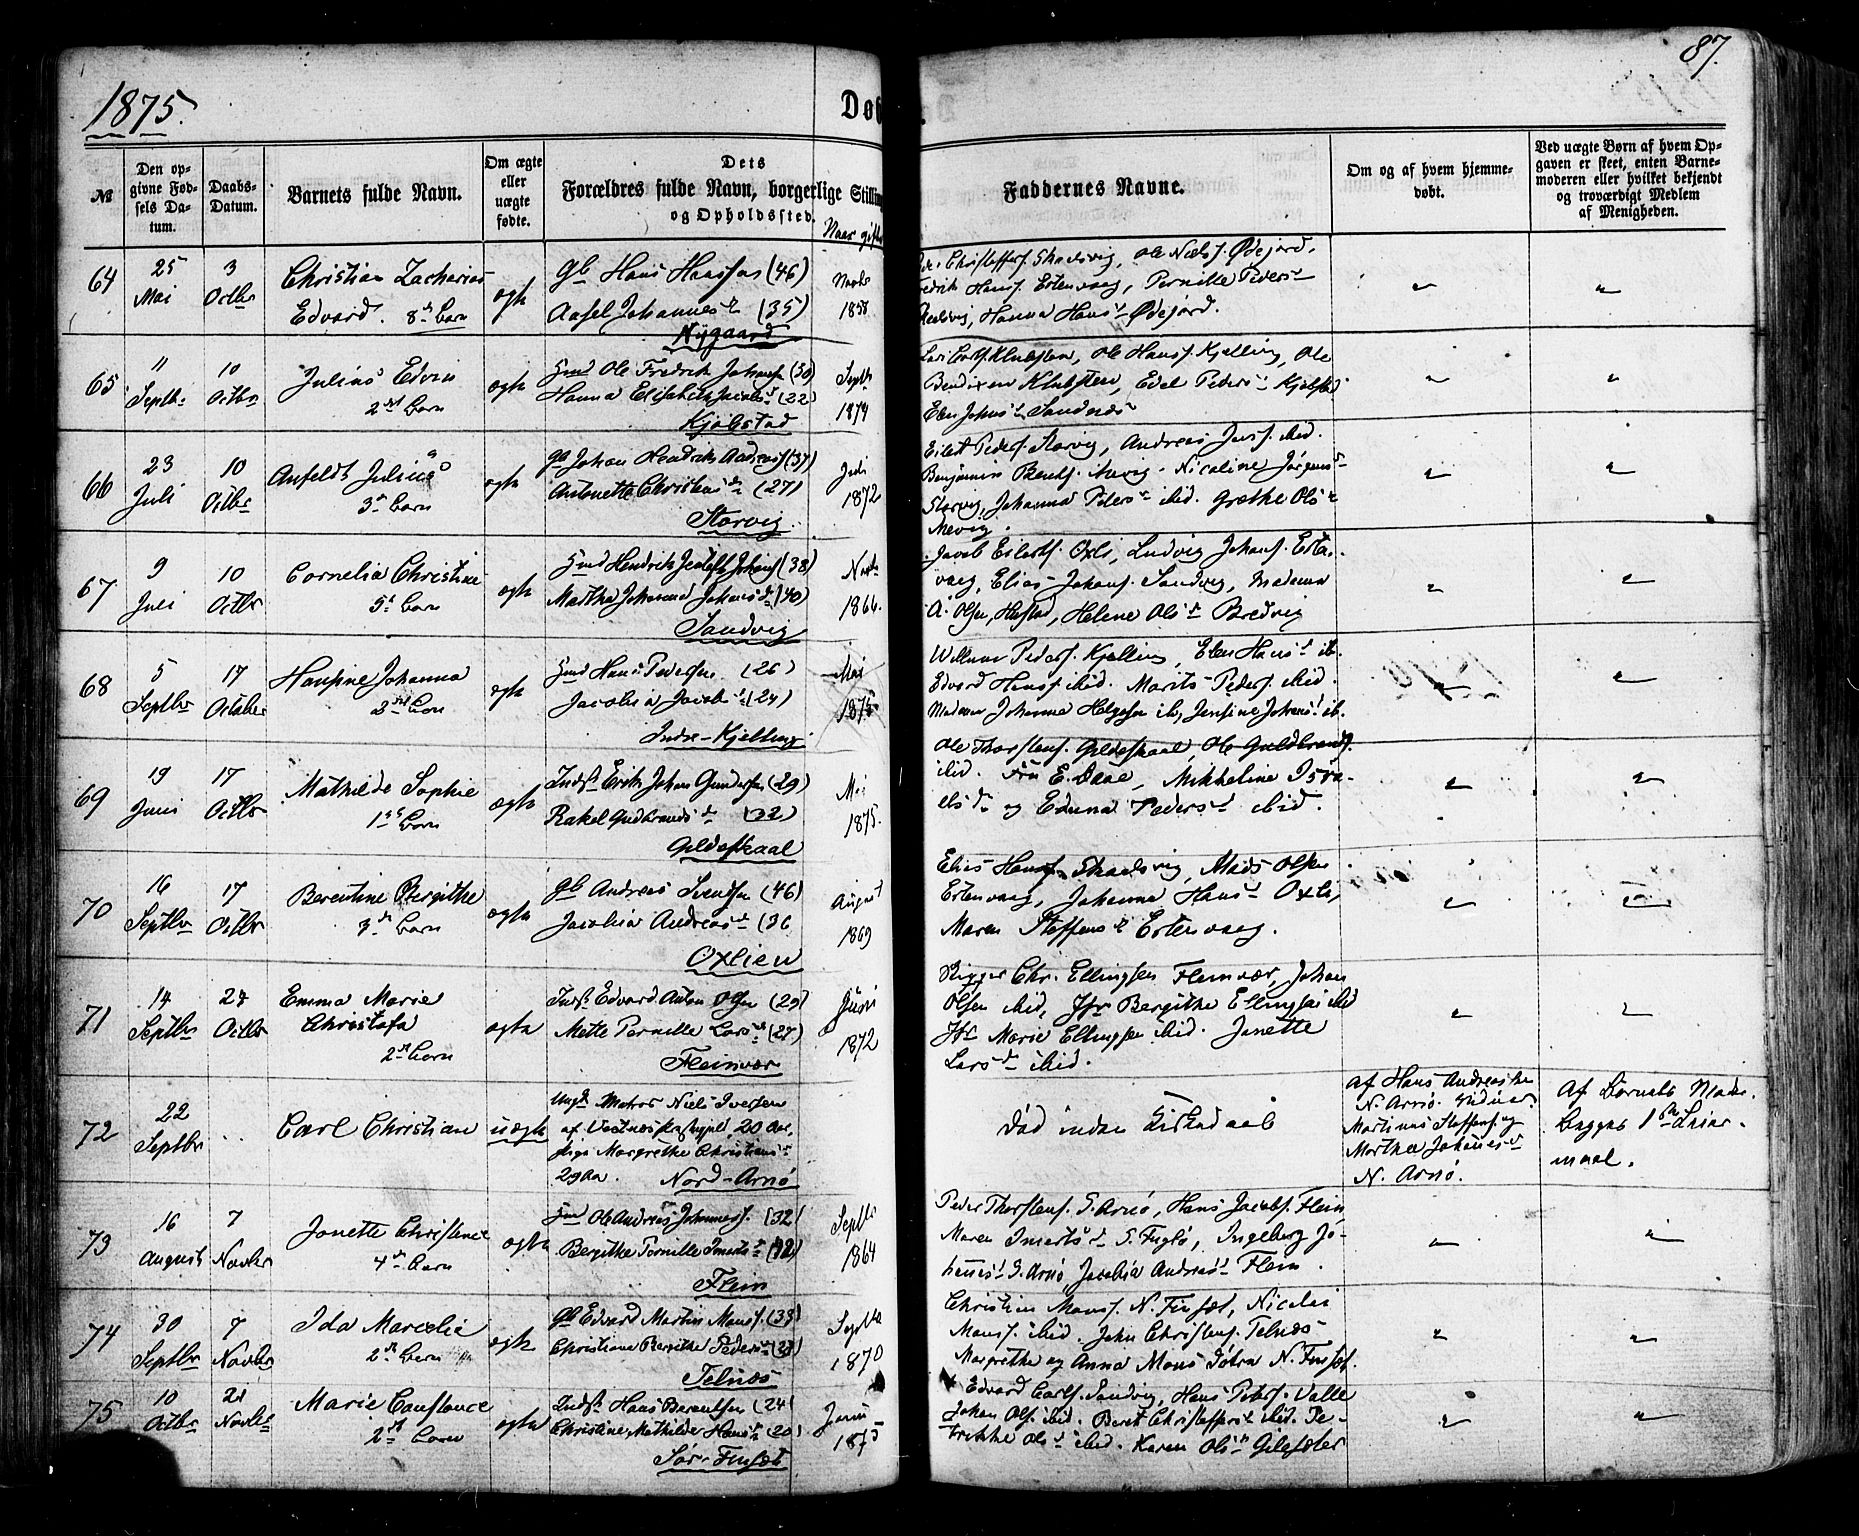 87.
1875.
Døb
№
Den opgivne Fødsels Datum.
Daabs-Datum.
Barnets fulde Navn.
Om ægte eller uægte fødte.
Dets Forældres fulde Navn, borgerlige Stilling og Opholdssted.
Naar gifte
Faddernes Navne.
Om og af hvem hjemmedøbt.
Ved uægte Børn af hvem Opgaven er skeet, enten Barnemoderen eller hvilket bekjendt og troværdigt Medlem af Menigheden.
64
25 Mai
3 Octbr
Christian Zacharias
Edvard. 8de barn
ægte
Gb Hans Hanssen (46)
Aasel Johannesd. (35)
Nygaard
Novbr 1858
Christoffers. Strandvig, Ole Niels. Ødejord.
Hans. Ertenvaag, Pernille Peders d
Hanna Hans d Ødejord.
"
"
65
" Septbr
10 Octbr
Julius Edvin
2det barn
ægte
Gmd Ole Fredrik Johans (30)
Hanna Elisabeth Jacobs d (22)
Kjøbstad
Septbr 1874
Klubsten, Ole Hans. Kjelling, Ole
Bendixen Klubsten, Edel Peders d Kjøbstad
Elen Johns d Sandnæs
"
"
66
23 Juli
10 Octbr
Anfeldt Julius
3de barn
ægte
Gb Johan Hendrik Andreas (37)
Antonette Christens d (27)
Storvig
Juli 1872
Eilert Peders. Storvig, Andreas Jens. ibid.
Benjamin Bents. Mevig. Nicoline Jørgens d
Storvig, Johanna Peders d ibid. Grethe Ols d
Mevig.
"
"
67
9 Juli
10 Octbr
Cornelia Christine
5te barn
ægte
Gmd Hendrik Johans (38)
Martha Johanna Johans d (40)
Sandvig
Novbr 1866.
Jacob Eilerts. Oxli, Ludvig Johans. Erten-
vaag, Elias Johans. Sandvig, Madama
A. Olsen, Hustad, Helene Ols d Bredvig
"
"
68
5 Septbr
17 October
Hansine Johanna
2det barn
ægte
Gmd Hans Pedersen (26)
Jacobia Jacobs d (24)
Indre-Kjelling
Mai 1875
Willum Peders. Kjelling, Elen Hans d ib.
Edvard Hans. ibid. Marits Peders. ibid.
Madam Johanna Helgesen ib, Jensine Johans d ib.
"
"
69
19 Juni
17 Octbr
Mathilde Sophie
1ste barn
ægte
Inds. Erik Johan Gundersen (29)
Rakel Gudbrands d (22)
Gildeskaal
Mai 1875.
Ole Thorstens. Gildeskaal, Ole Guldbrands.
ibid. Fru E. Daae, Mikkeline Isra-
els d og Edina Peders d ibid.
"
"
70
16 Septbr
17 Octbr
Berentine Bergithe
3de barn
ægte
Gb Andreas Svendsen (46)
Jacobia Andreas d (36
Oxlien
August 1869
Elias Hans. Strandvig, Mads Olsen
Ertenvaag, Johanna Hans d Oxli,
Maren Steffens d Ertenvaag.
"
"
71
14 Septbr
24 Octbr
Emma Marie
Christofa
2det barn
ægte
Inds. Edvard Anton Olsen (29)
Mette Pernille Lars d (27)
Fleinvær
Juni 1872
Skipper Chr. Ellingsen Fleinvær, Johan
Olsen ibid, Jfr Bergithe Ellingsen ibid
Jfr Marie Ellingsen ibid. Janette
Lars d ibid.
"
"
72
22 Septbr
Carl Christian
uægte
Ungk. Matros Niels Iversen
af Vestnæs 20 Aar,
Pige Margrethe Christians d
29 Aar. Nord-Arnø
Død inden Kirkedaab
af Hans Andreas
N. Arnø. Vidner:
Martinus Steffens. og
Martha Johannes d
N. Arnø.
Af Barnets Moder.
Begges 1ste Leier-
maal.
73
16 August
7 Novbr
Janette Christence
4de barn
ægte
Gmd Ole Andreas Johannes. (32)
Bergithe Pernille Imerts d (32)
Flein
Septbr 1864
Peder Thorstens. S. Arnø, Hans Jacobs. Flein
Maren Imerts d S. Fuglø, Ingeborg Jo-
hannes d S. Arnø, Jacobia Andreas d Flein.
"
"
74
30 Septbr
7 Novbr
Ida Marcelie
2det barn
ægte
Gb Edvard Martin Mons. (33)
Christiana Bergithe Peders d (27)
Telnæs
Septbr 1870
Christian Mons. N. Finsæt, Nicolai
Mons. ibid. John Christens. Telnæs
Margrethe og Anna Mons Døtre N. Finsæt.
"
"
75
10 Octbr
21 Novbr
Marie Constance
2det barn
ægte
Inds. Hans Berentsen (24)
Christine Mathilde Hans d (20)
Sør-Finsæt
Januar 1873
Edvard Carls. Sandvig, Hans Peters. Valle
Johan Ols. ibid. Beret Christoffers d ibid. Pe-
trikke Ols d ibid. Karen Ols d Gilesæter
"
"